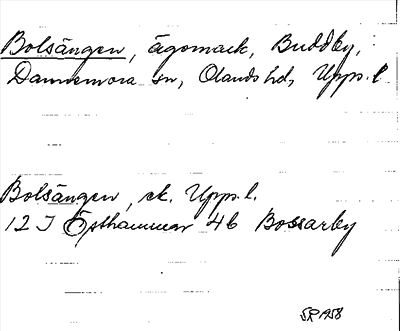 Bolsängen, ägomark, Buddby,
Dannemora sn, Olands hd, Upps. l.
Bolsängen, ek. Upps. l.
12 I Östhammar 4b Bossarby
SR 1958